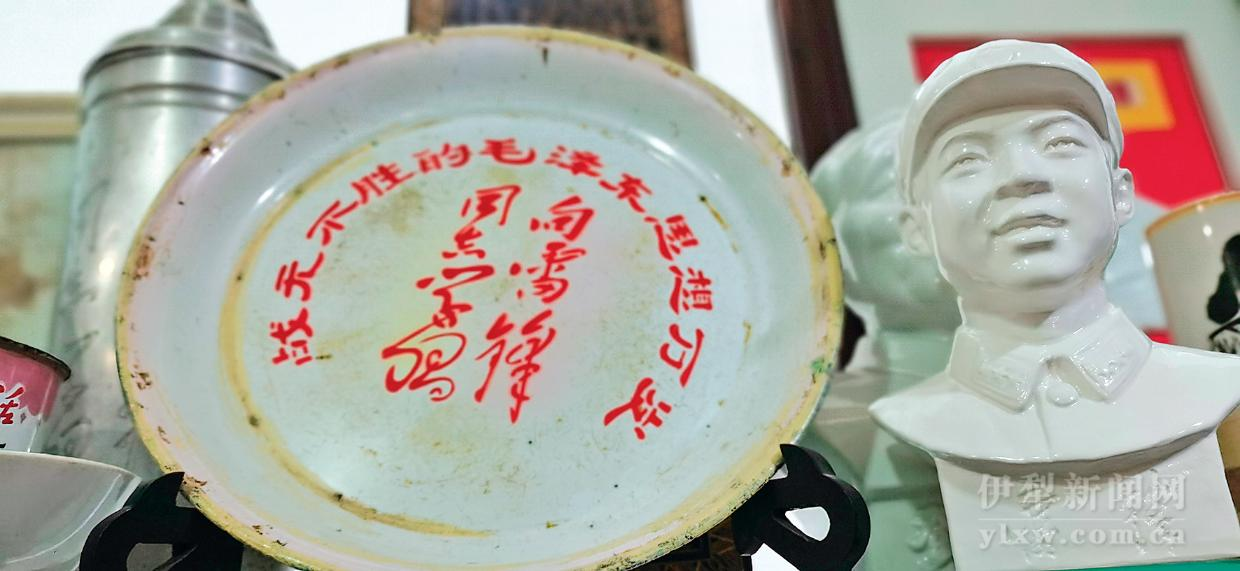 战无不胜的毛泽东思想万岁
向雷锋
同志学习
活
伊犁新闻网
ylxw.com.cn